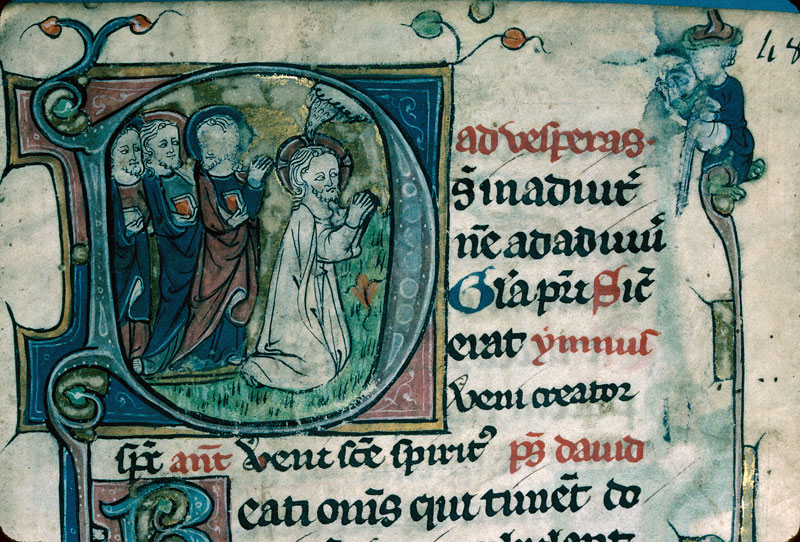 48
ad vesperas.
D̄s in adiut̄
n̄e ad adiuuā
Gl̄a pr̄i Sic̄
erat ymnus
Veni creator
sp̄c ant̄ Veni sc̄e spiritꝰ p̄s dauid
Beati om̄s qui timēt do